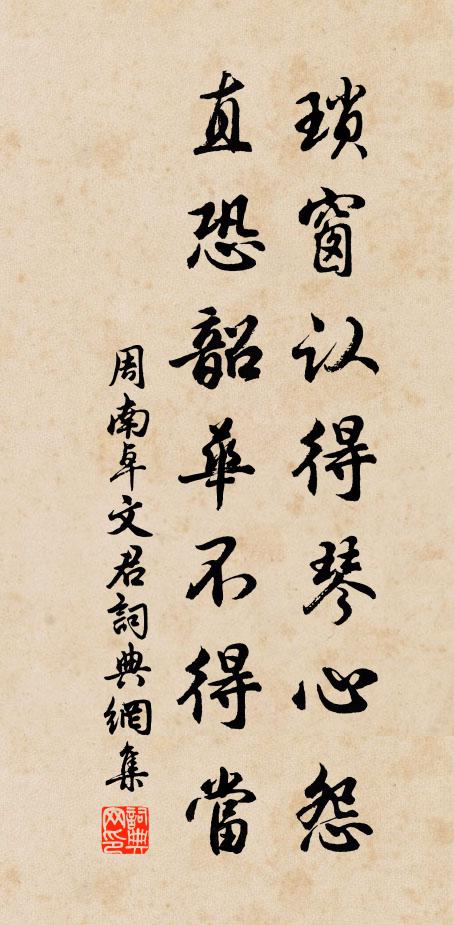 瑣窗认得琴心怨
直恐韶華不得當
周南卓文君詞典網集
詞典网印